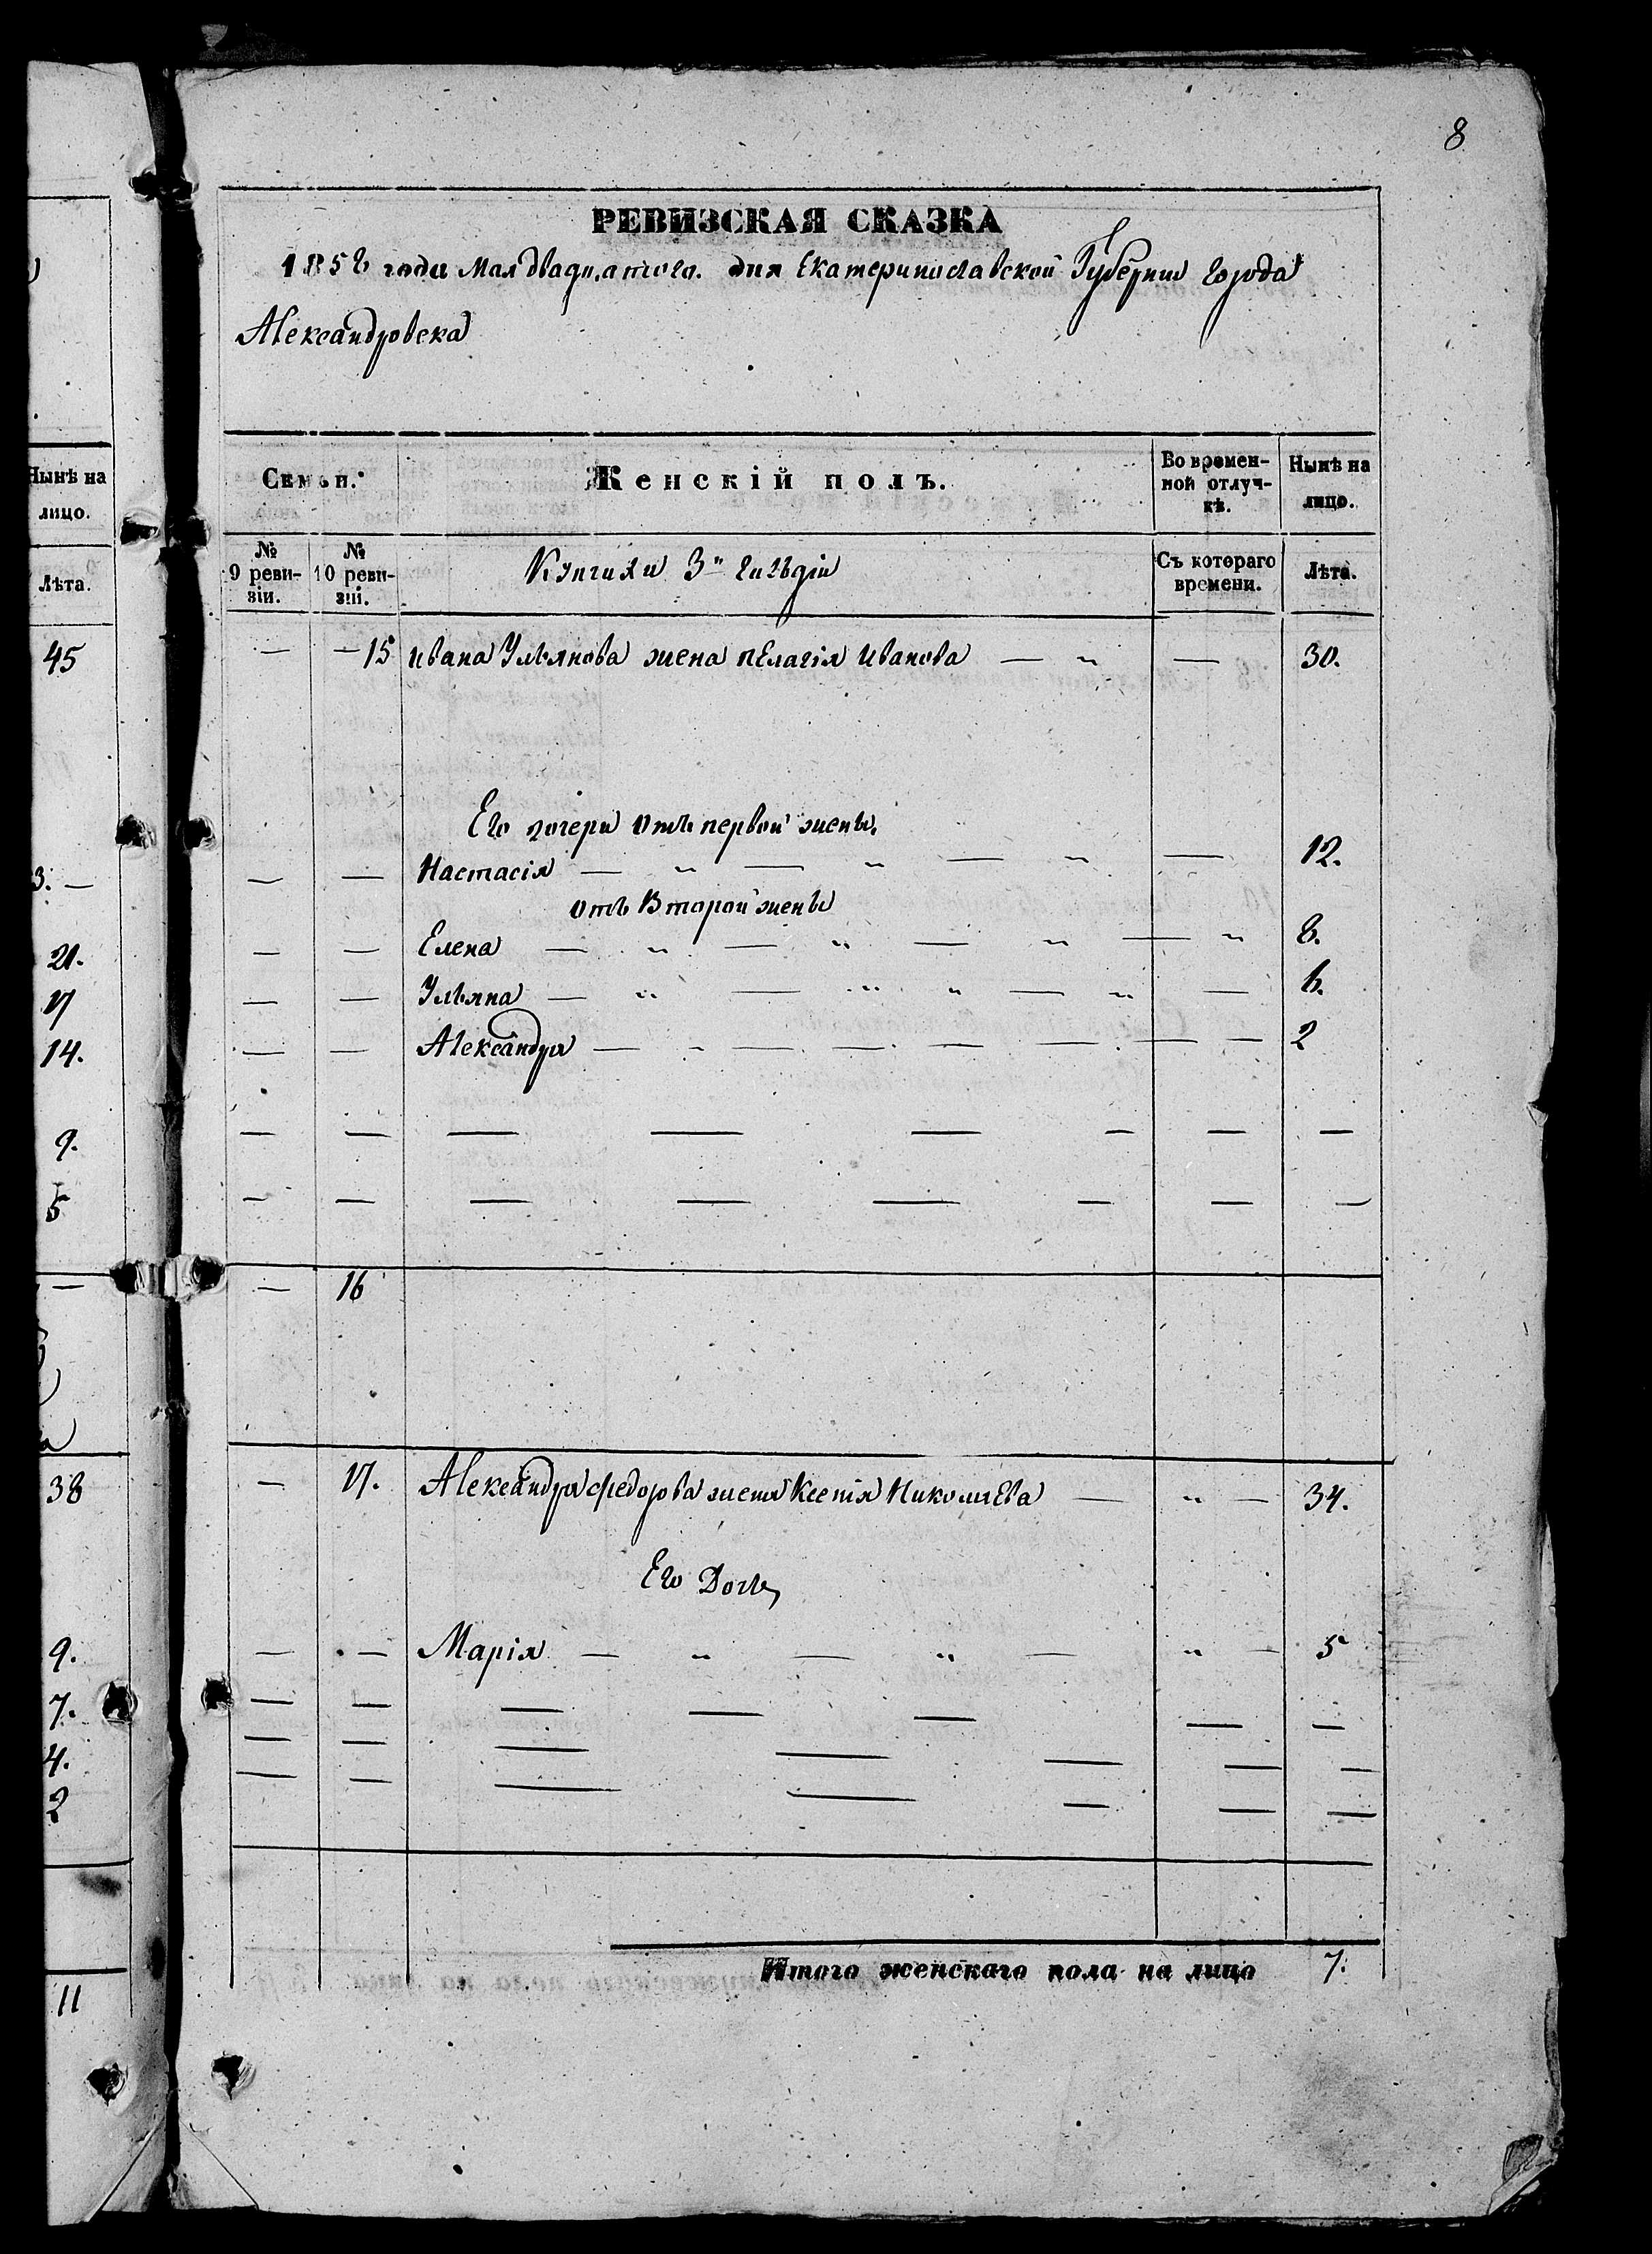 8
РЕВИЗСКАЯ СКАЗКА
1858 года Мая двадцатого дня Екатеринославской Губернии города
Александровска
Нынѣ на
лицо.
Лѣта.
45
3. —
21.
17
14.
9.
5
38
9.
7.
4.
2
11
Семьи.
Женскій полъ.
Во времен-
ной отлуч-
кѣ.
Нынѣ на
лицо.
№
9 реви-
зіи.
№
10 реви-
зіи.
Купчихи 3й гильдіи
Съ котораго
времени.
Лѣта.
— — 15 Ивана Ульянова жена Пелагія Иванова — „ — 30.
Его дочери отъ первой жены.
— — Настасія — „ — „ — „ — 12.
отъ Второй жены
— — Елена — „ — „ — „ — „ 8.
— — Ульяна — „ — „ „ — „ — 6.
— — Александра — - — — — — — — 2
— — — — — — — —
— — — — — — — —
— 16
— 17. Александра Федорова жена Ксенія Николаева — „ — 34.
Его Дочь
— — Марія — „ — „ — „ — 5
— — — — — — —
— — — — — — —
— — — — — — —
Итого женскаго пола на лицо 7.